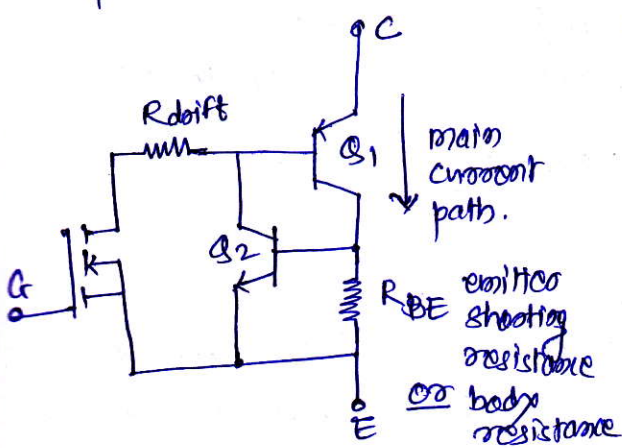 C
Rdrift
Q1
main
current
path.
Q2
G
RBE
emitter
shooting
resistance
or body
resistance
E